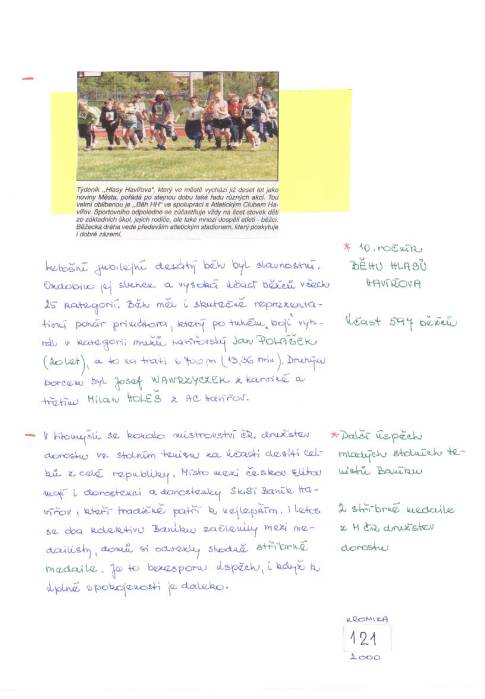 Týdeník „Hlasy Havířova", který ve městě vychází již deset let jako
noviny Města, pořádá po stejnou dobu také řadu různých akcí. Tou
velmi oblíbenou je „Běh HH" ve spolupráci s Atletickým Clubem Ha-
vířov. Sportovního odpoledne se zúčastňuje vždy na šest stovek dětí
ze základních škol, jejich rodiče, ale také mnozí dospělí atleti - běžci.
Běžecká dráha vede především atletickým stadionem, který poskytuje
i dobré zázemí.
Letošní jubilejní desátý běh byl slavnostní.
Ozdobilo jej slunce a vysoká účast běžců všech
25 kategorií. Běh měl i skutečně reprezenta-
tivní pohár primátora, který po tuhém „boji" vyh-
rál v kategorii mužů havířovský Jan POLÁŠEK
(20 let), a to za trati 6 400 m (19,36 min). Druhým
borcem byl Josef WAWRZYCZEK z Karviné a
třetím Milan HOLEŠ z AC Havířov.
* 10. ročník
BĚHU HLASŮ
HAVÍŘOVA
Účast 597 běžců
V Litomyšli se konalo mistrovství ČR družstev
dorostu ve stolním tenisu za účasti desíti cel-
ků z celé republiky. Místo mezi českou elitou
mají i dorostenci a dorostenky SKST Baník Ha-
vířov, kteří tradičně patří k nejlepším. I letos
se oba kolektivy Baníku začlenily mezi me-
dailisty, domů si odvezly shodně stříbrné
medaile. Je to bezesporu úspěch, i když k
úplné spokojenosti je daleko.
* Další úspěch
mladých stolních te-
nistů Baníku
2 stříbrné medaile
z M ČR družstev
dorostu
KRONIKA
121
2000